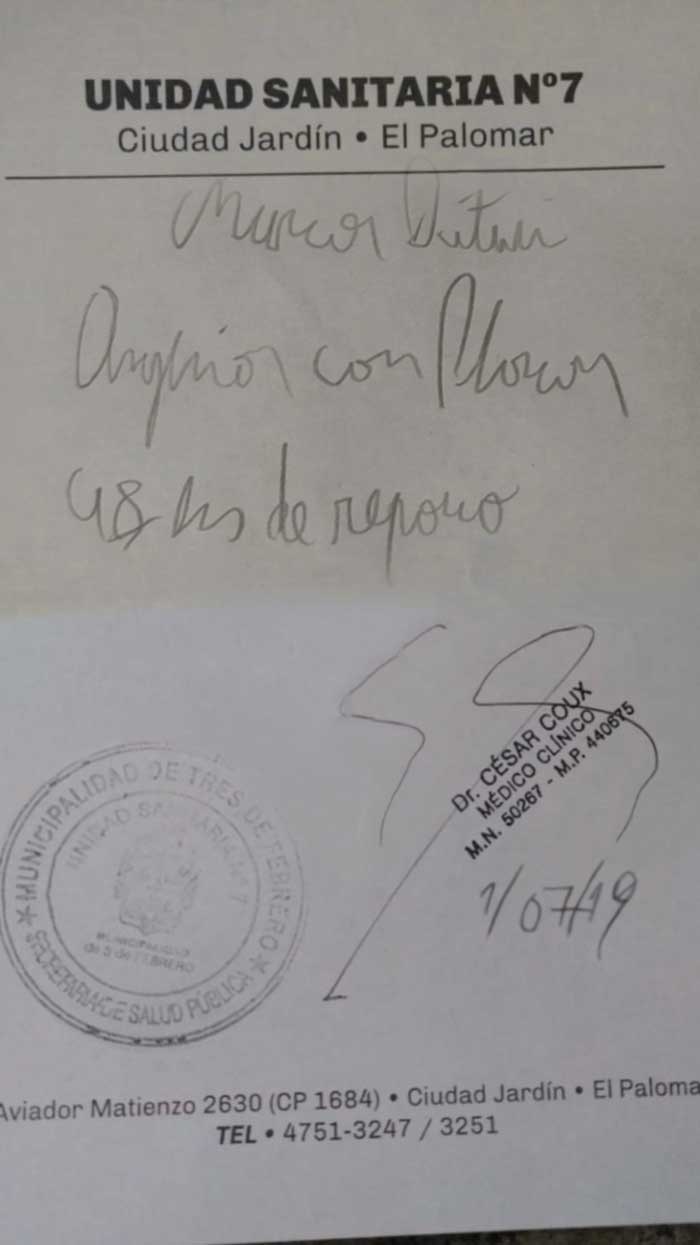 UNIDAD SANITARIA Nº7
Ciudad Jardín • El Palomar
Anginas con Placas
48 hs de reposo
Dr. CÉSAR COUX
MÉDICO CLÍNICO
M.N. 50267 - M.P. 440675
1/07/19
MUNICIPALIDAD DE TRES DE FEBRERO
UNIDAD SANITARIA Nº 7
MUNICIPALIDAD
de 3 de FEBRERO
SECRETARIA DE SALUD PÚBLICA
Aviador Matienzo 2630 (CP 1684) • Ciudad Jardín • El Paloma
TEL • 4751-3247 / 3251